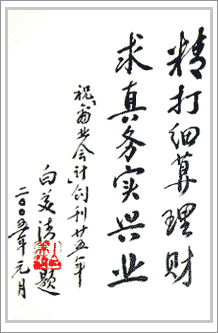 精打细算理财
求真务实兴业
祝《商业会计》创刊廿五年
白美清题
二〇〇五年元月